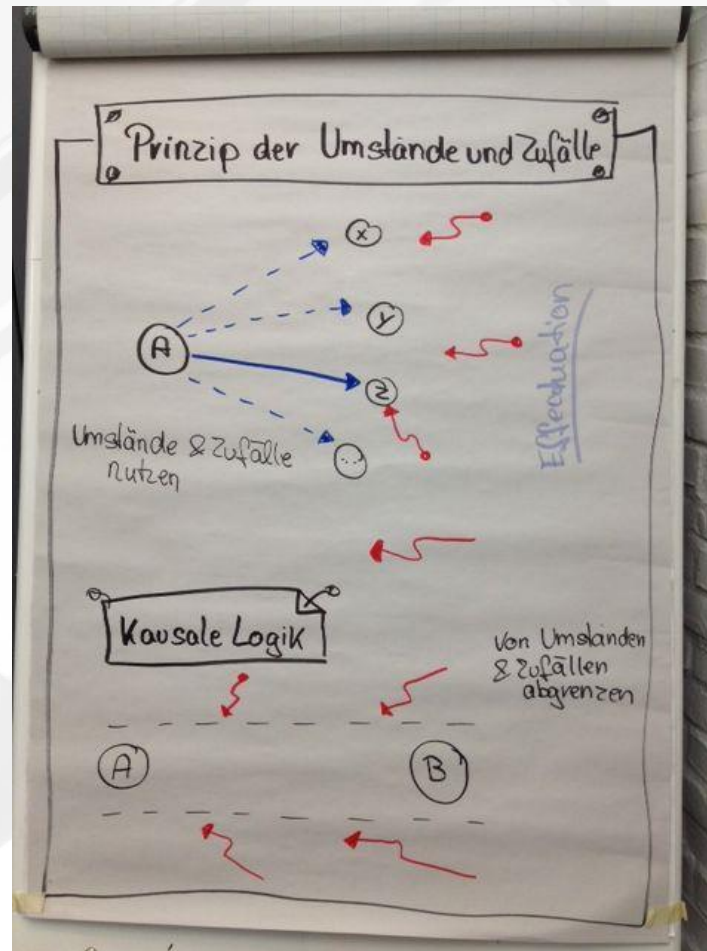 Prinzip der Umstände und Zufälle
x
y
A
z
...
Effectuation
Umstände & Zufälle
nutzen
Kausale Logik
von Umständen
& Zufällen
abgrenzen
A
B